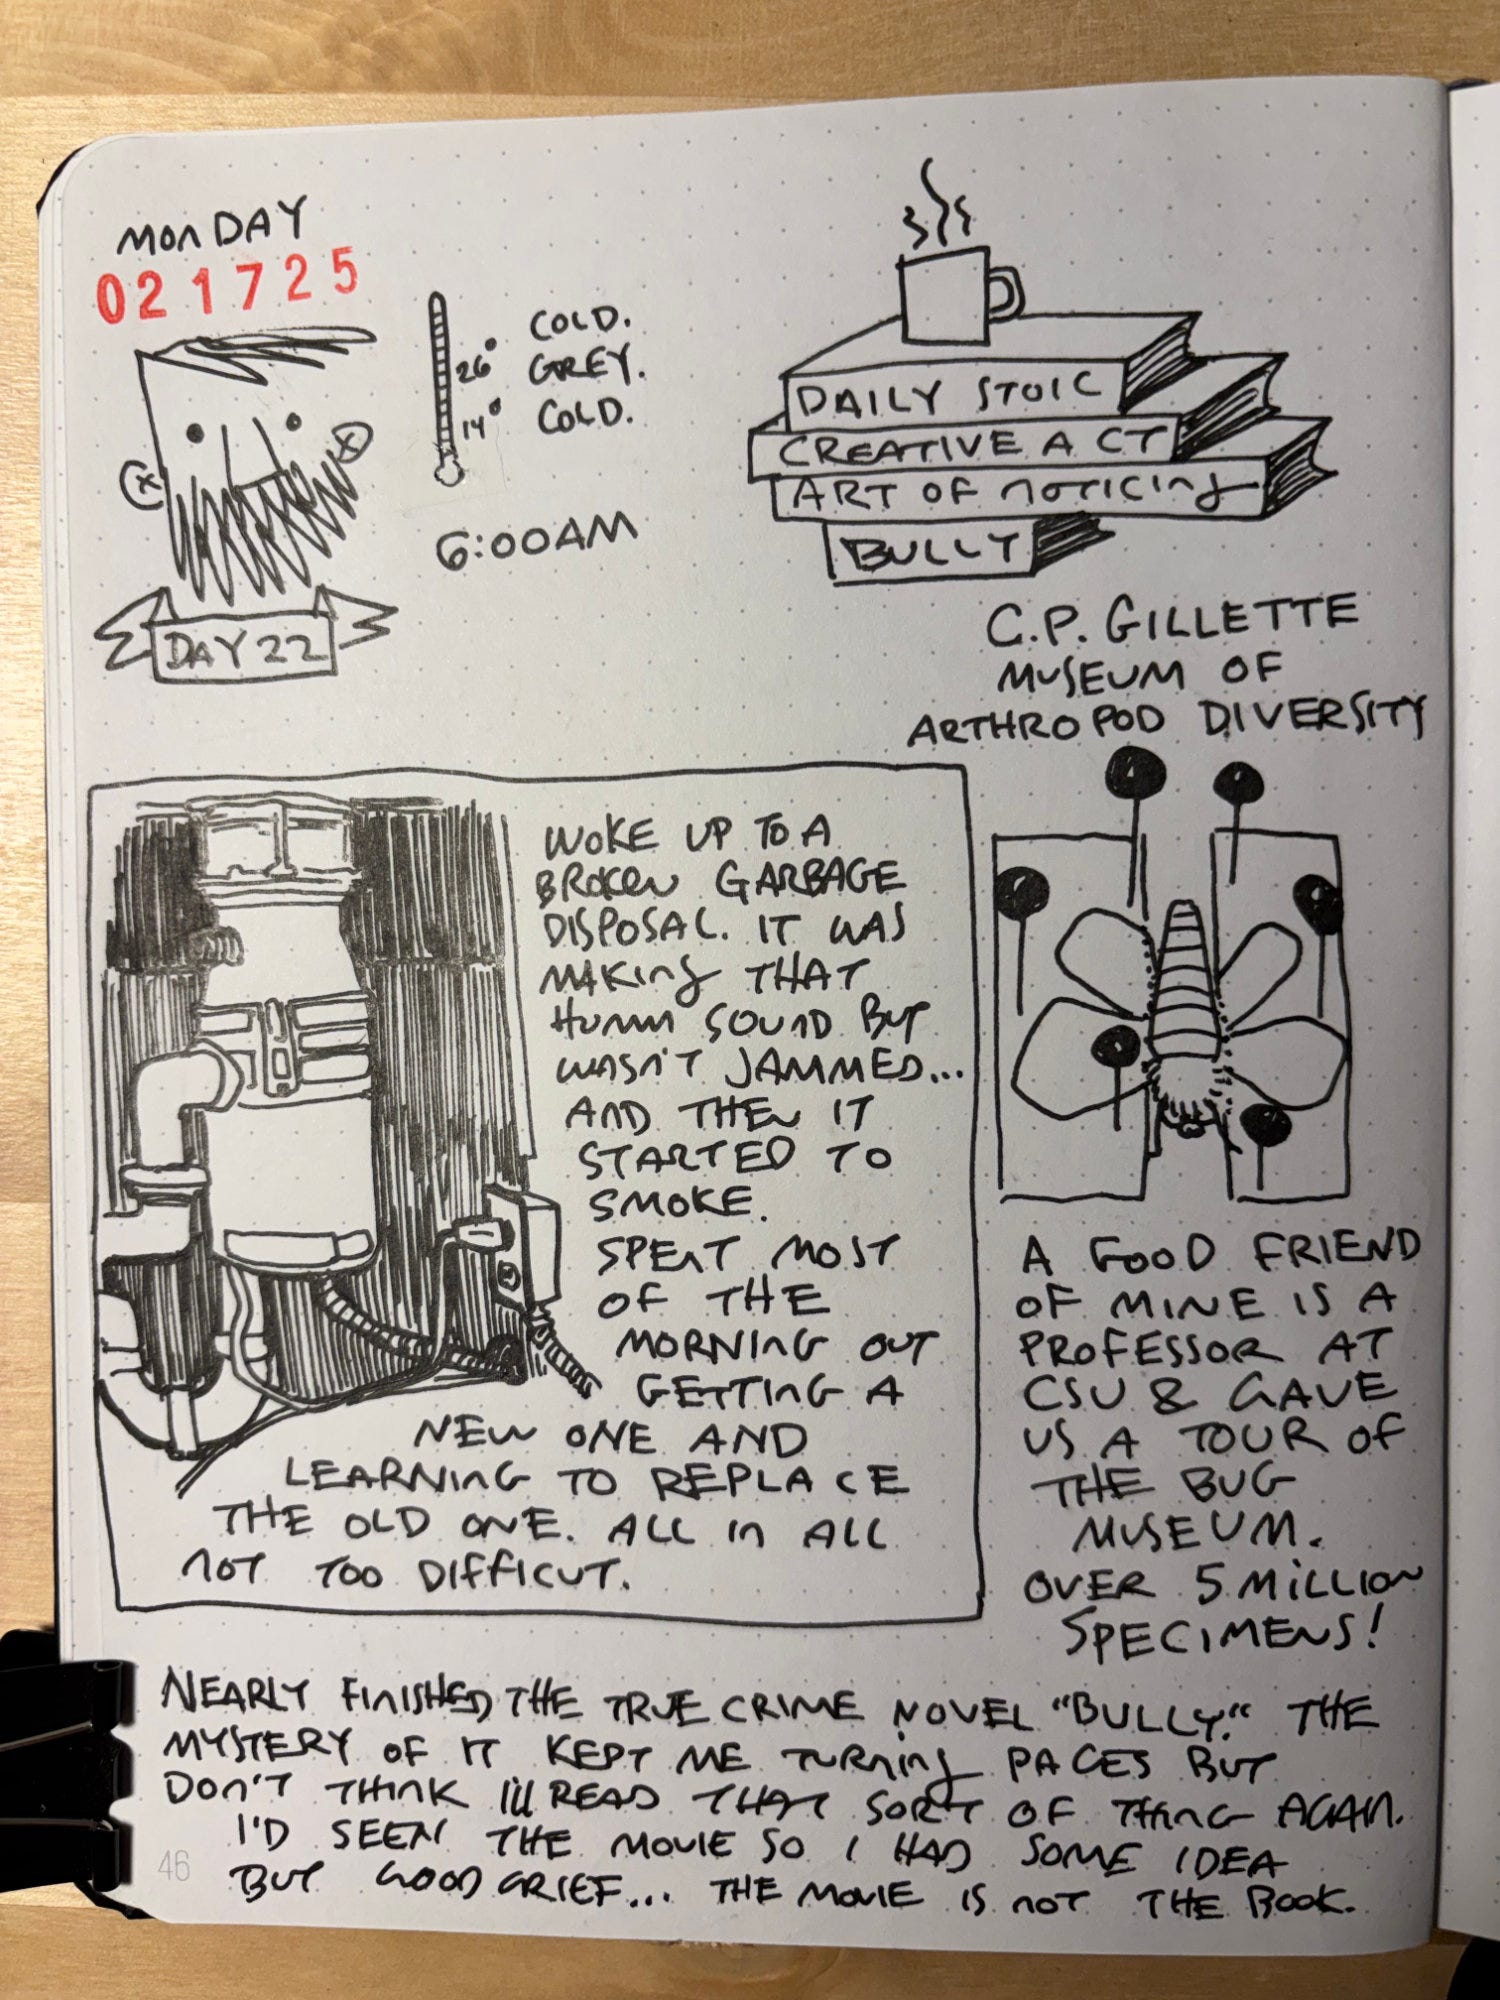 MonDAY
021725
26°
14°
COLD.
GREY.
COLD.
6:00AM
DAY 22
DAILY STOIC
CREATIVE ACT
ART OF noTICIng
BULLY
C.P. GILLETTE
MUSEUM OF
ARTHROPOD DIVERSITY
WOKE UP TO A
BROKEN GARBAGE
DISPOSAL. IT WAS
MAKing THAT
HUMM SOUND BUT
WASN'T JAMMED...
AND THEN IT
STARTED TO
SMOKE.
SPENT MOST
OF THE
MORNING OUT
GETTING A
NEW ONE AND
LEARNING TO REPLACE
THE OLD ONE. ALL in ALL
noT TOO DIFFICUT.
A GOOD FRIEND
OF MINE IS A
PROFESSOR AT
CSU & GAVE
US A TOUR OF
THE BUG
MUSEUM.
OVER 5 MiLLION
SPECIMENS!
NEARLY FINISHED THE TRUE CRIME NOVEL "BULLY." THE
MYSTERY OF IT KEPT ME TURNing PAGES BUT
DON'T THINK I'll READ THAT SORT OF THING AGAIN.
I'D SEEN THE MOVIE SO I HAD SOME IDEA
BUT GOOD GRIEF... THE MOVIE IS noT THE BOOK.
46